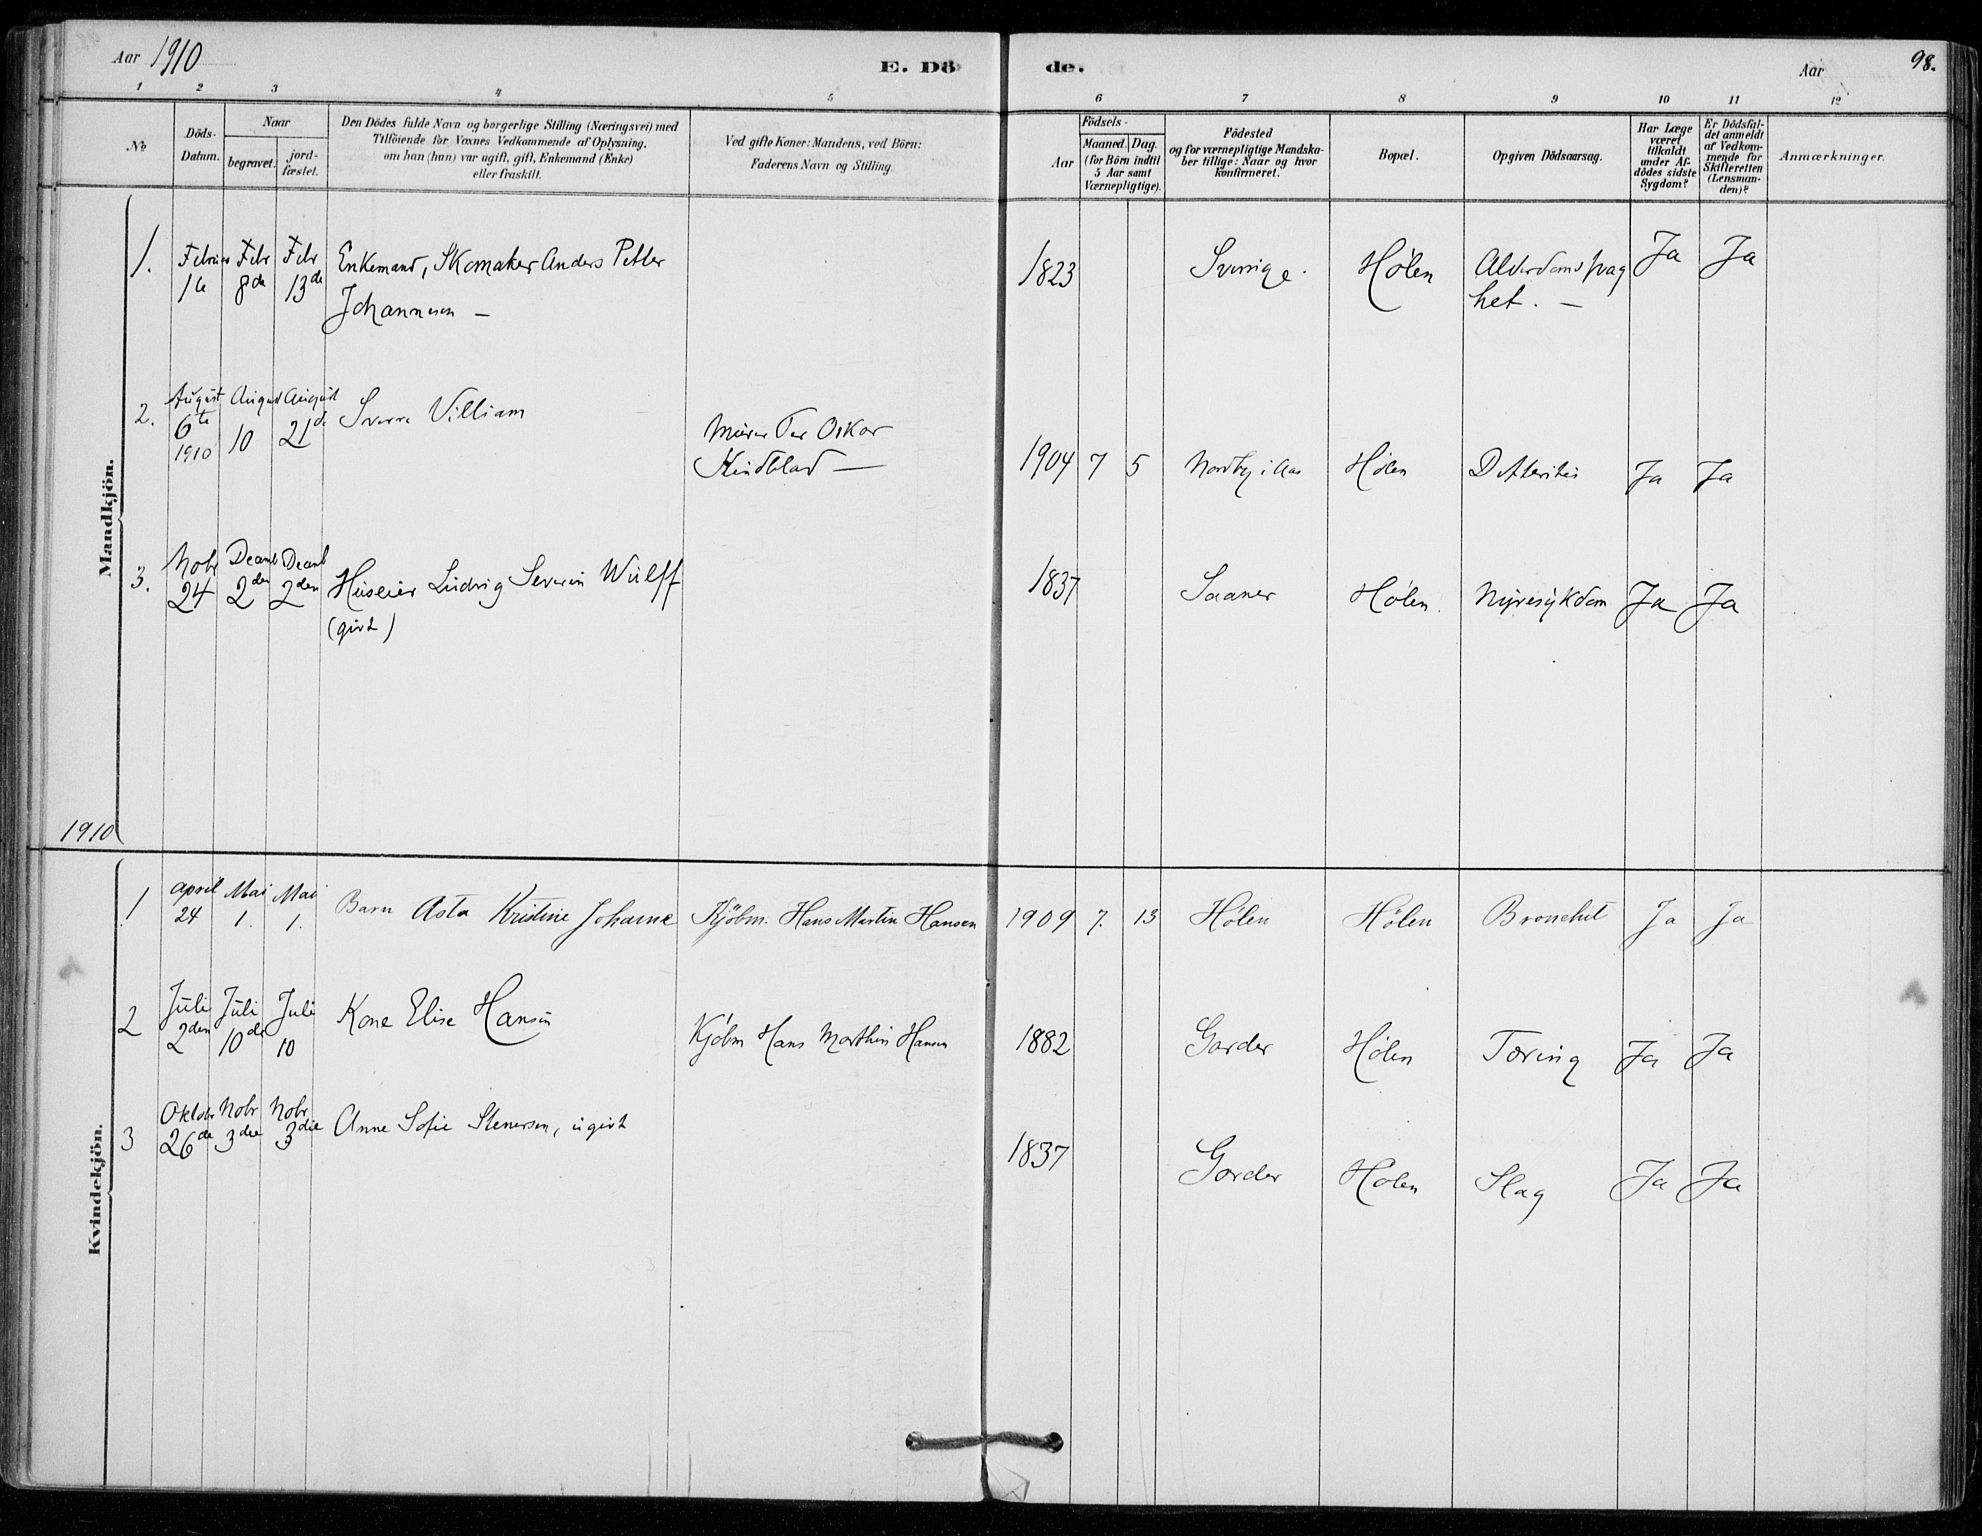 Aar 1910
E. Döde.
Aar
98.
1 2 3 4 5 6 7 8 9 10 11 12
No
Döds-
Datum.
Naar
begravet.
jord-
fæstet.
Den Dödes fulde Navn og borgerlige Stilling (Næringsvei) med
Tilföiende for Voxnes Vedkommende af Oplysning,
om han (hun) var ugift, gift, Enkemand (Enke)
eller fraskilt.
Ved gifte Koner: Mandens, ved Börn:
Faderens Navn og Stilling.
Födsels-
Aar
Maaned. Dag.
(for Börn indtil
5 Aar samt
Værnepligtige).
Födested
og for værnepligtige Mandska-
ber tillige: Naar og hvor
konfirmeret.
Bopæl.
Opgiven Dödsaarsag.
Har Læge
været
tilkaldt
under Af-
dödes sidste
Sygdom?
Er Dödsfal-
det anmeldt
af Vedkom-
mende for
Skifteretten
(Lensman-
den)?
Anmærkninger.
Mandkjön.
1. Februar Febr Febr Enkemand, Skomaker Anders Petter 1823 Sverige. Hølen Alderdomssvag Ja Ja
1te 8de 13de Johannesen — het. —
2. August August August Sverre Villiam
6te 10 21de
1910
Murer Per Oskar
Kindblad —
1904 7 5 Nordby i Aas Hølen Difteritis Ja Ja
3. Nobr Decemb Decemb
24 2den 2den Huseier Ludvig Severin Wulff 1837 Saaner Hølen. Nyresykdom Ja Ja
(givt)
1910
Kvindekjön.
1 April Mai Mai Barn Asta Kristine Johanne Kjöbm. Hans Martin Hansen 1909 7. 13 Hölen Hölen Bronchit Ja Ja
24 1. 1.
2 Juli Juli Juli Kone Elise Hansen Kjøbm Hans Marthin Hansen 1882 Garder Hølen Tæring Ja Ja
2den 10de 10
3 Oktobr Nobr Nobr Anne Sofie Stenersen, ugivt 1837 Garder Hølen Slag Ja Ja
26de 3die 3die